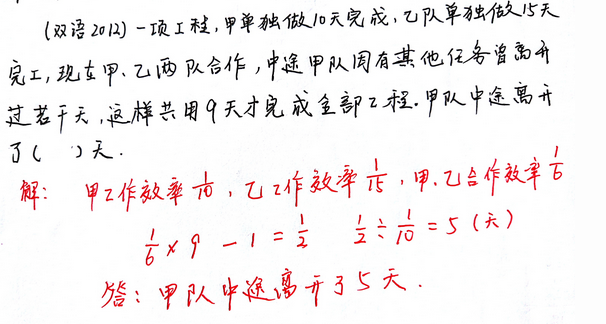 (双语2012)一项工程,甲单独做10天完成,乙队单独做15天
完工,现在甲.乙两队合作,中途甲队因有其他任务曾离开
过若干天,这样共用9天才完成全部工程.甲队中途离开
了( )天.
解: 甲工作效率1/10,乙工作效率1/15,甲.乙合作效率1/6
1/6×9-1=1/2 1/2÷1/10=5(天)
答:甲队中途离开了5天.